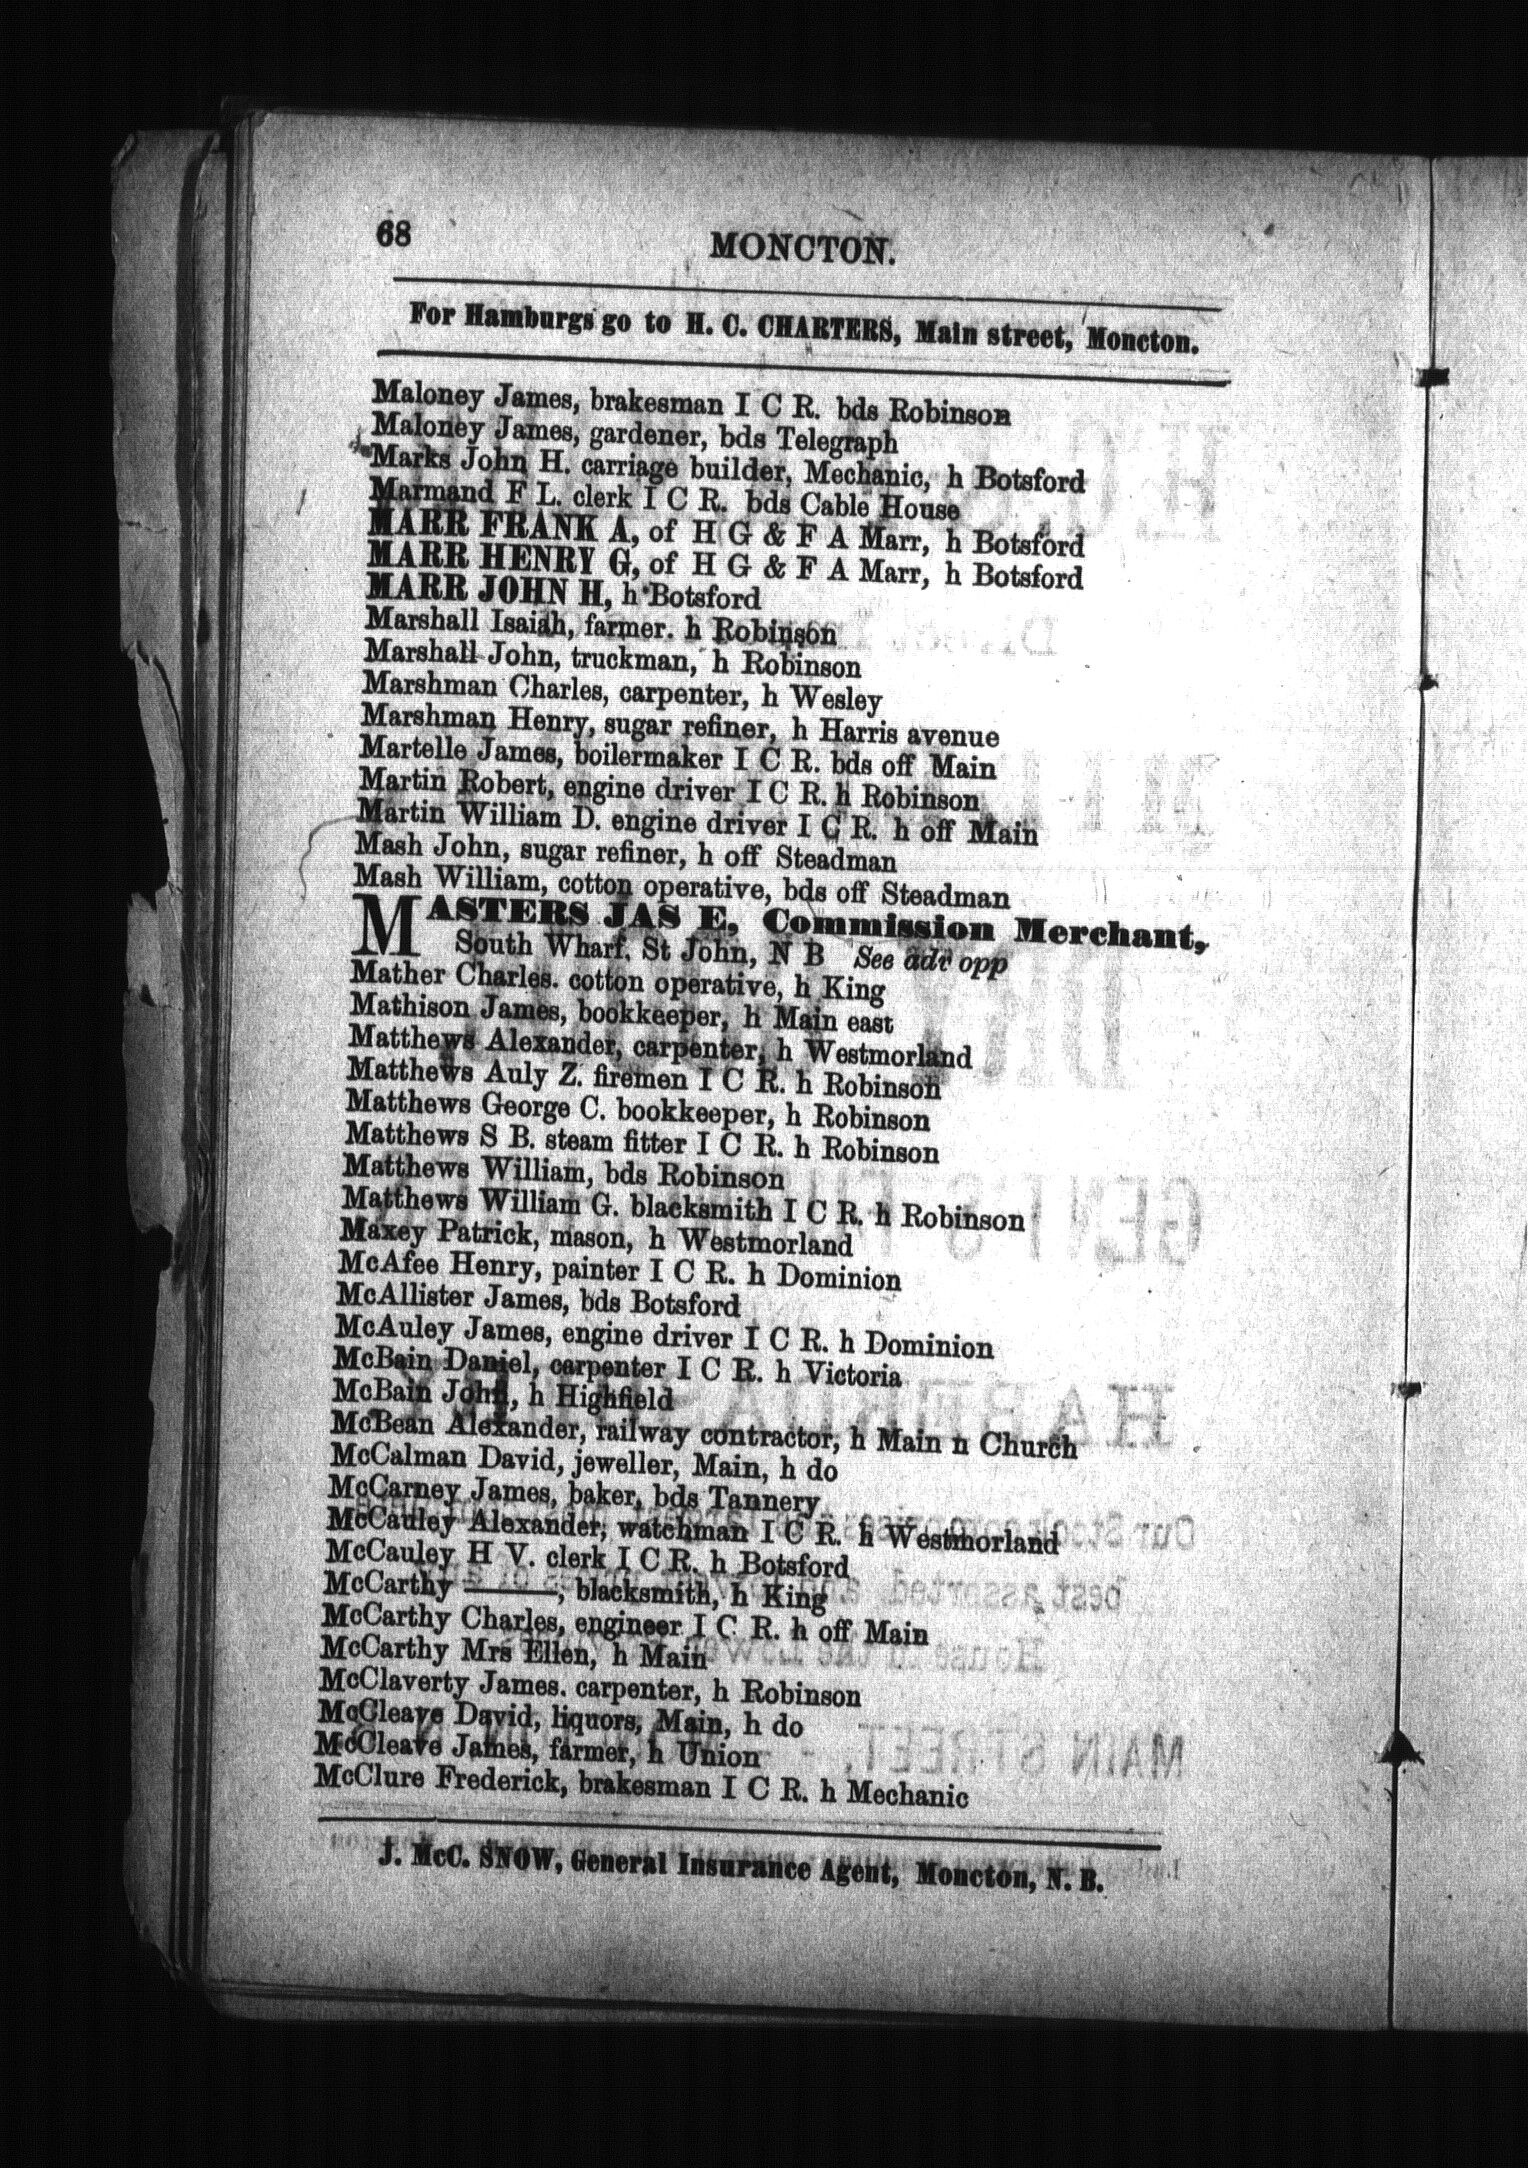 68
MONCTON.
For Hamburgs go to H. C. CHARTERS, Main street, Moncton.
Maloney James, brakesman I C R. bds Robinson
Maloney James, gardener, bds Telegraph
Marks John H. carriage builder, Mechanic, h Botsford
Marmand F L. clerk I C R. bds Cable House
MARR FRANK A, of H G & F A Marr, h Botsford
MARR HENRY G, of H G & F A Marr, h Botsford
MARR JOHN H, h Botsford
Marshall Isaiah, farmer. h Robinson
Marshall John, truckman, h Robinson
Marshman Charles, carpenter, h Wesley
Marshman Henry, sugar refiner, h Harris avenue
Martelle James, boilermaker I C R. bds off Main
Martin Robert, engine driver I C R. h Robinson
Martin William D. engine driver I C R. h off Main
Mash John, sugar refiner, h off Steadman
Mash William, cotton operative, bds off Steadman
MASTERS JAS E, Commission Merchant,
South Wharf, St John, N B See adv opp
Mather Charles. cotton operative, h King
Mathison James, bookkeeper, h Main east
Matthews Alexander, carpenter, h Westmorland
Matthews Auly Z. firemen I C R. h Robinson
Matthews George C. bookkeeper, h Robinson
Matthews S B. steam fitter I C R. h Robinson
Matthews William, bds Robinson
Matthews William G. blacksmith I C R. h Robinson
Maxey Patrick, mason, h Westmorland
McAfee Henry, painter I C R. h Dominion
McAllister James, bds Botsford
McAuley James, engine driver I C R. h Dominion
McBain Daniel, carpenter I C R. h Victoria
McBain John, h Highfield
McBean Alexander, railway contractor, h Main n Church
McCalman David, jeweller, Main, h do
McCarney James, baker, bds Tannery
McCauley Alexander, watchman I C R. h Westmorland
McCauley H V. clerk I C R. h Botsford
McCarthy ———, blacksmith, h King
McCarthy Charles, engineer I C R. h off Main
McCarthy Mrs Ellen, h Main
McClaverty James. carpenter, h Robinson
McCleave David, liquors, Main, h do
McCleave James, farmer, h Union
McClure Frederick, brakesman I C R. h Mechanic
J. McC. SNOW, General Insurance Agent, Moncton, N. B.